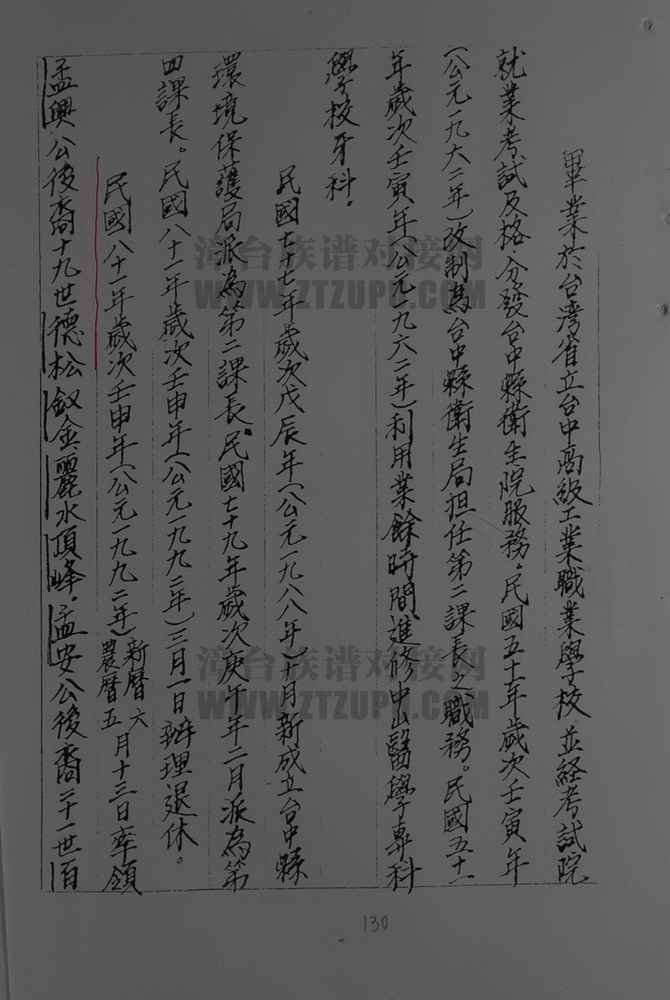 畢業於台灣省立台中高級工業職業學校並經考試院
就業考試及格分發台中縣衛生院服務。民國五十一年歲次壬寅年
(公元一九六二年)改制為台中縣衛生局担任第二課長之職務。民國五十一
年歲次壬寅年(公元一九六二年)利用業餘時間、進修中山醫學專科
學校牙科.
民國七十七年歲次戊辰年(公元一九八八年)十月新成立台中縣
環境保護局派為第二課長、民國七十九年歲次庚午年二月派為第
四課長。民國八十一年歲次壬申年(公元一九九二年)三月一日辦理退休。
民國八十一年歲次壬申年(公元一九九二年)新曆六農曆五月十三日率領
孟興公後裔十九世德松釵金麗水頂峰.孟安公後裔二十一世百
130
漳台族谱对接网
WWW.ZTZUPU.COM
漳台族谱对接网
WWW.ZTZUPU.COM